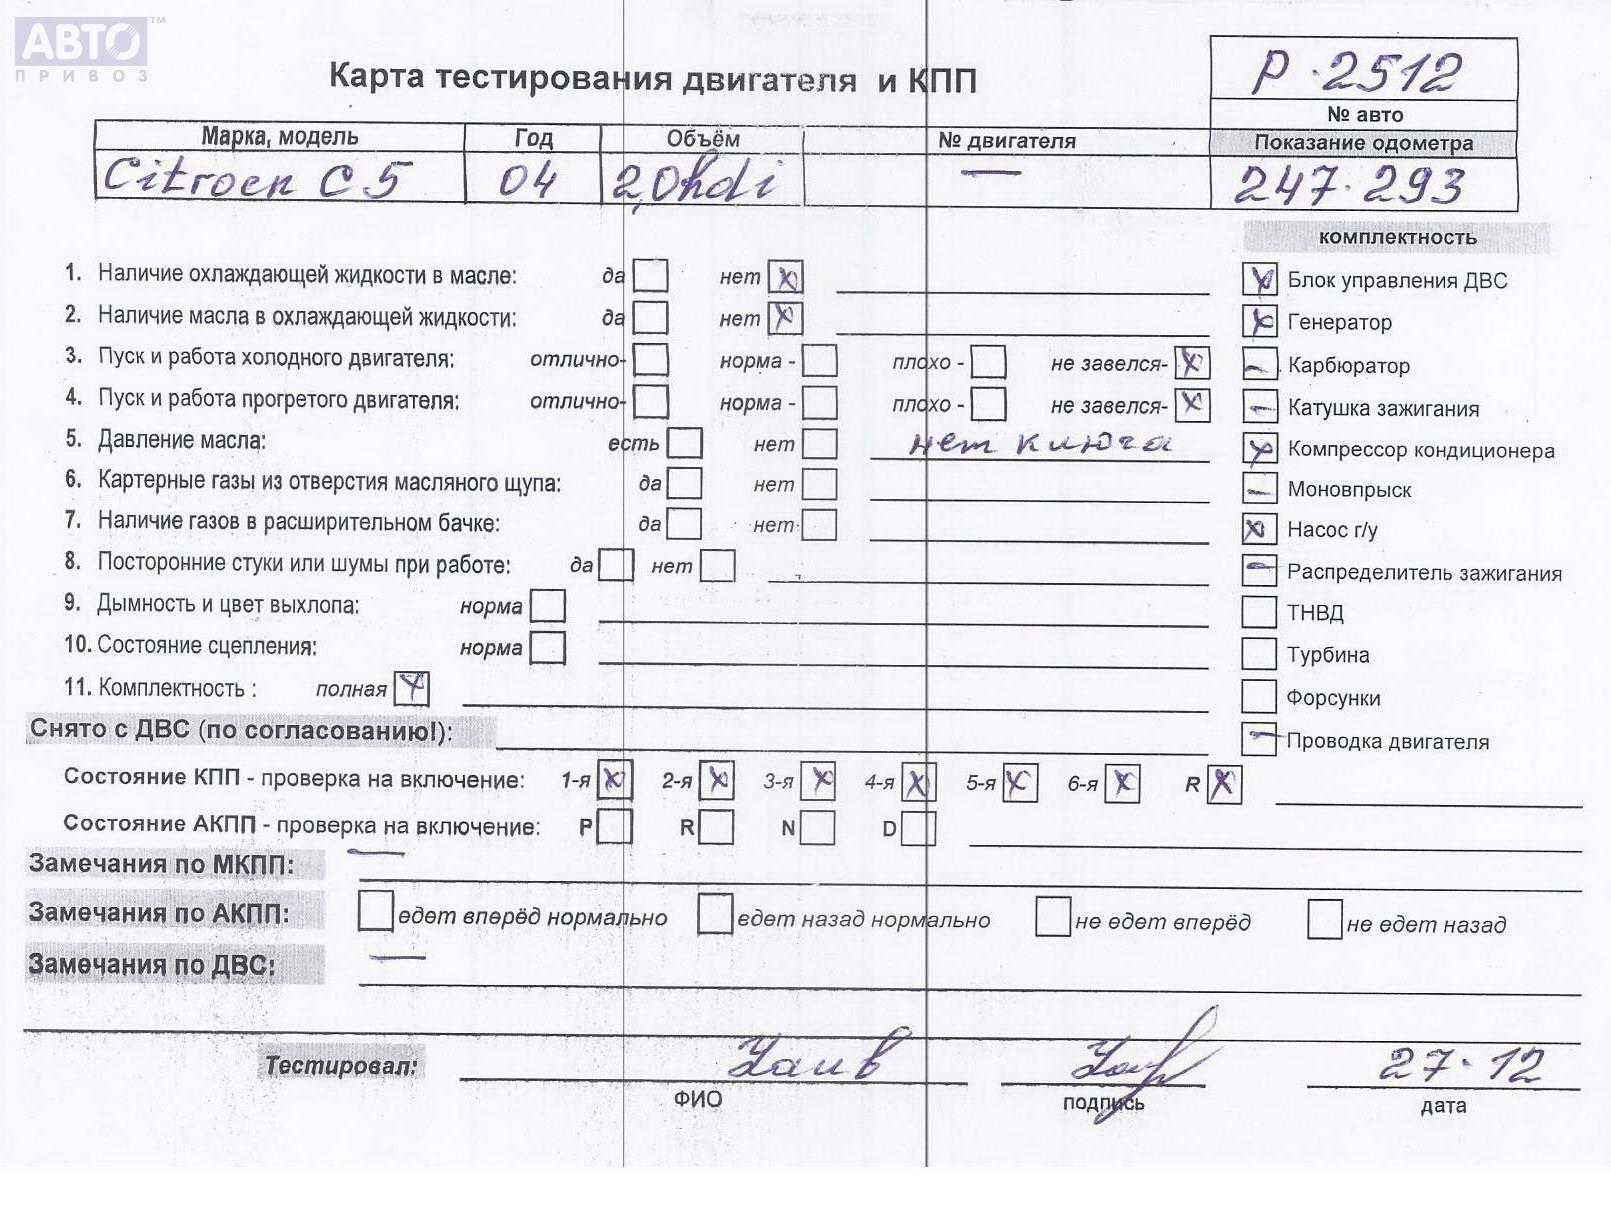 АВТО™
ПРИВОЗ
Карта тестирования двигателя и КПП
Р·2512
№ авто
Марка, модель Год Объём № двигателя Показание одометра
Citroen C5 04 2,0hdi — 247·293
комплектность
1. Наличие охлаждающей жидкости в масле: да нет x
Блок управления ДВС
2. Наличие масла в охлаждающей жидкости: да нет x
Генератор
3. Пуск и работа холодного двигателя: отлично- норма - плохо - не завелся- x
Карбюратор
4. Пуск и работа прогретого двигателя: отлично- норма - плохо - не завелся- x
Катушка зажигания
5. Давление масла: есть нет нет ключа
Компрессор кондиционера
6. Картерные газы из отверстия масляного щупа: да нет
Моновпрыск
7. Наличие газов в расширительном бачке: да нет
Насос г/у
8. Посторонние стуки или шумы при работе: да нет
Распределитель зажигания
9. Дымность и цвет выхлопа: норма
ТНВД
10. Состояние сцепления: норма
Турбина
11. Комплектность : полная x
Форсунки
Снято с ДВС (по согласованию!):
Проводка двигателя
Состояние КПП - проверка на включение: 1-я x 2-я x 3-я x 4-я x 5-я x 6-я x R x
Состояние АКПП - проверка на включение: P R N D
Замечания по МКПП: —
Замечания по АКПП: едет вперёд нормально едет назад нормально не едет вперёд не едет назад
Замечания по ДВС: —
Тестировал: 27·12
ФИО подпись дата